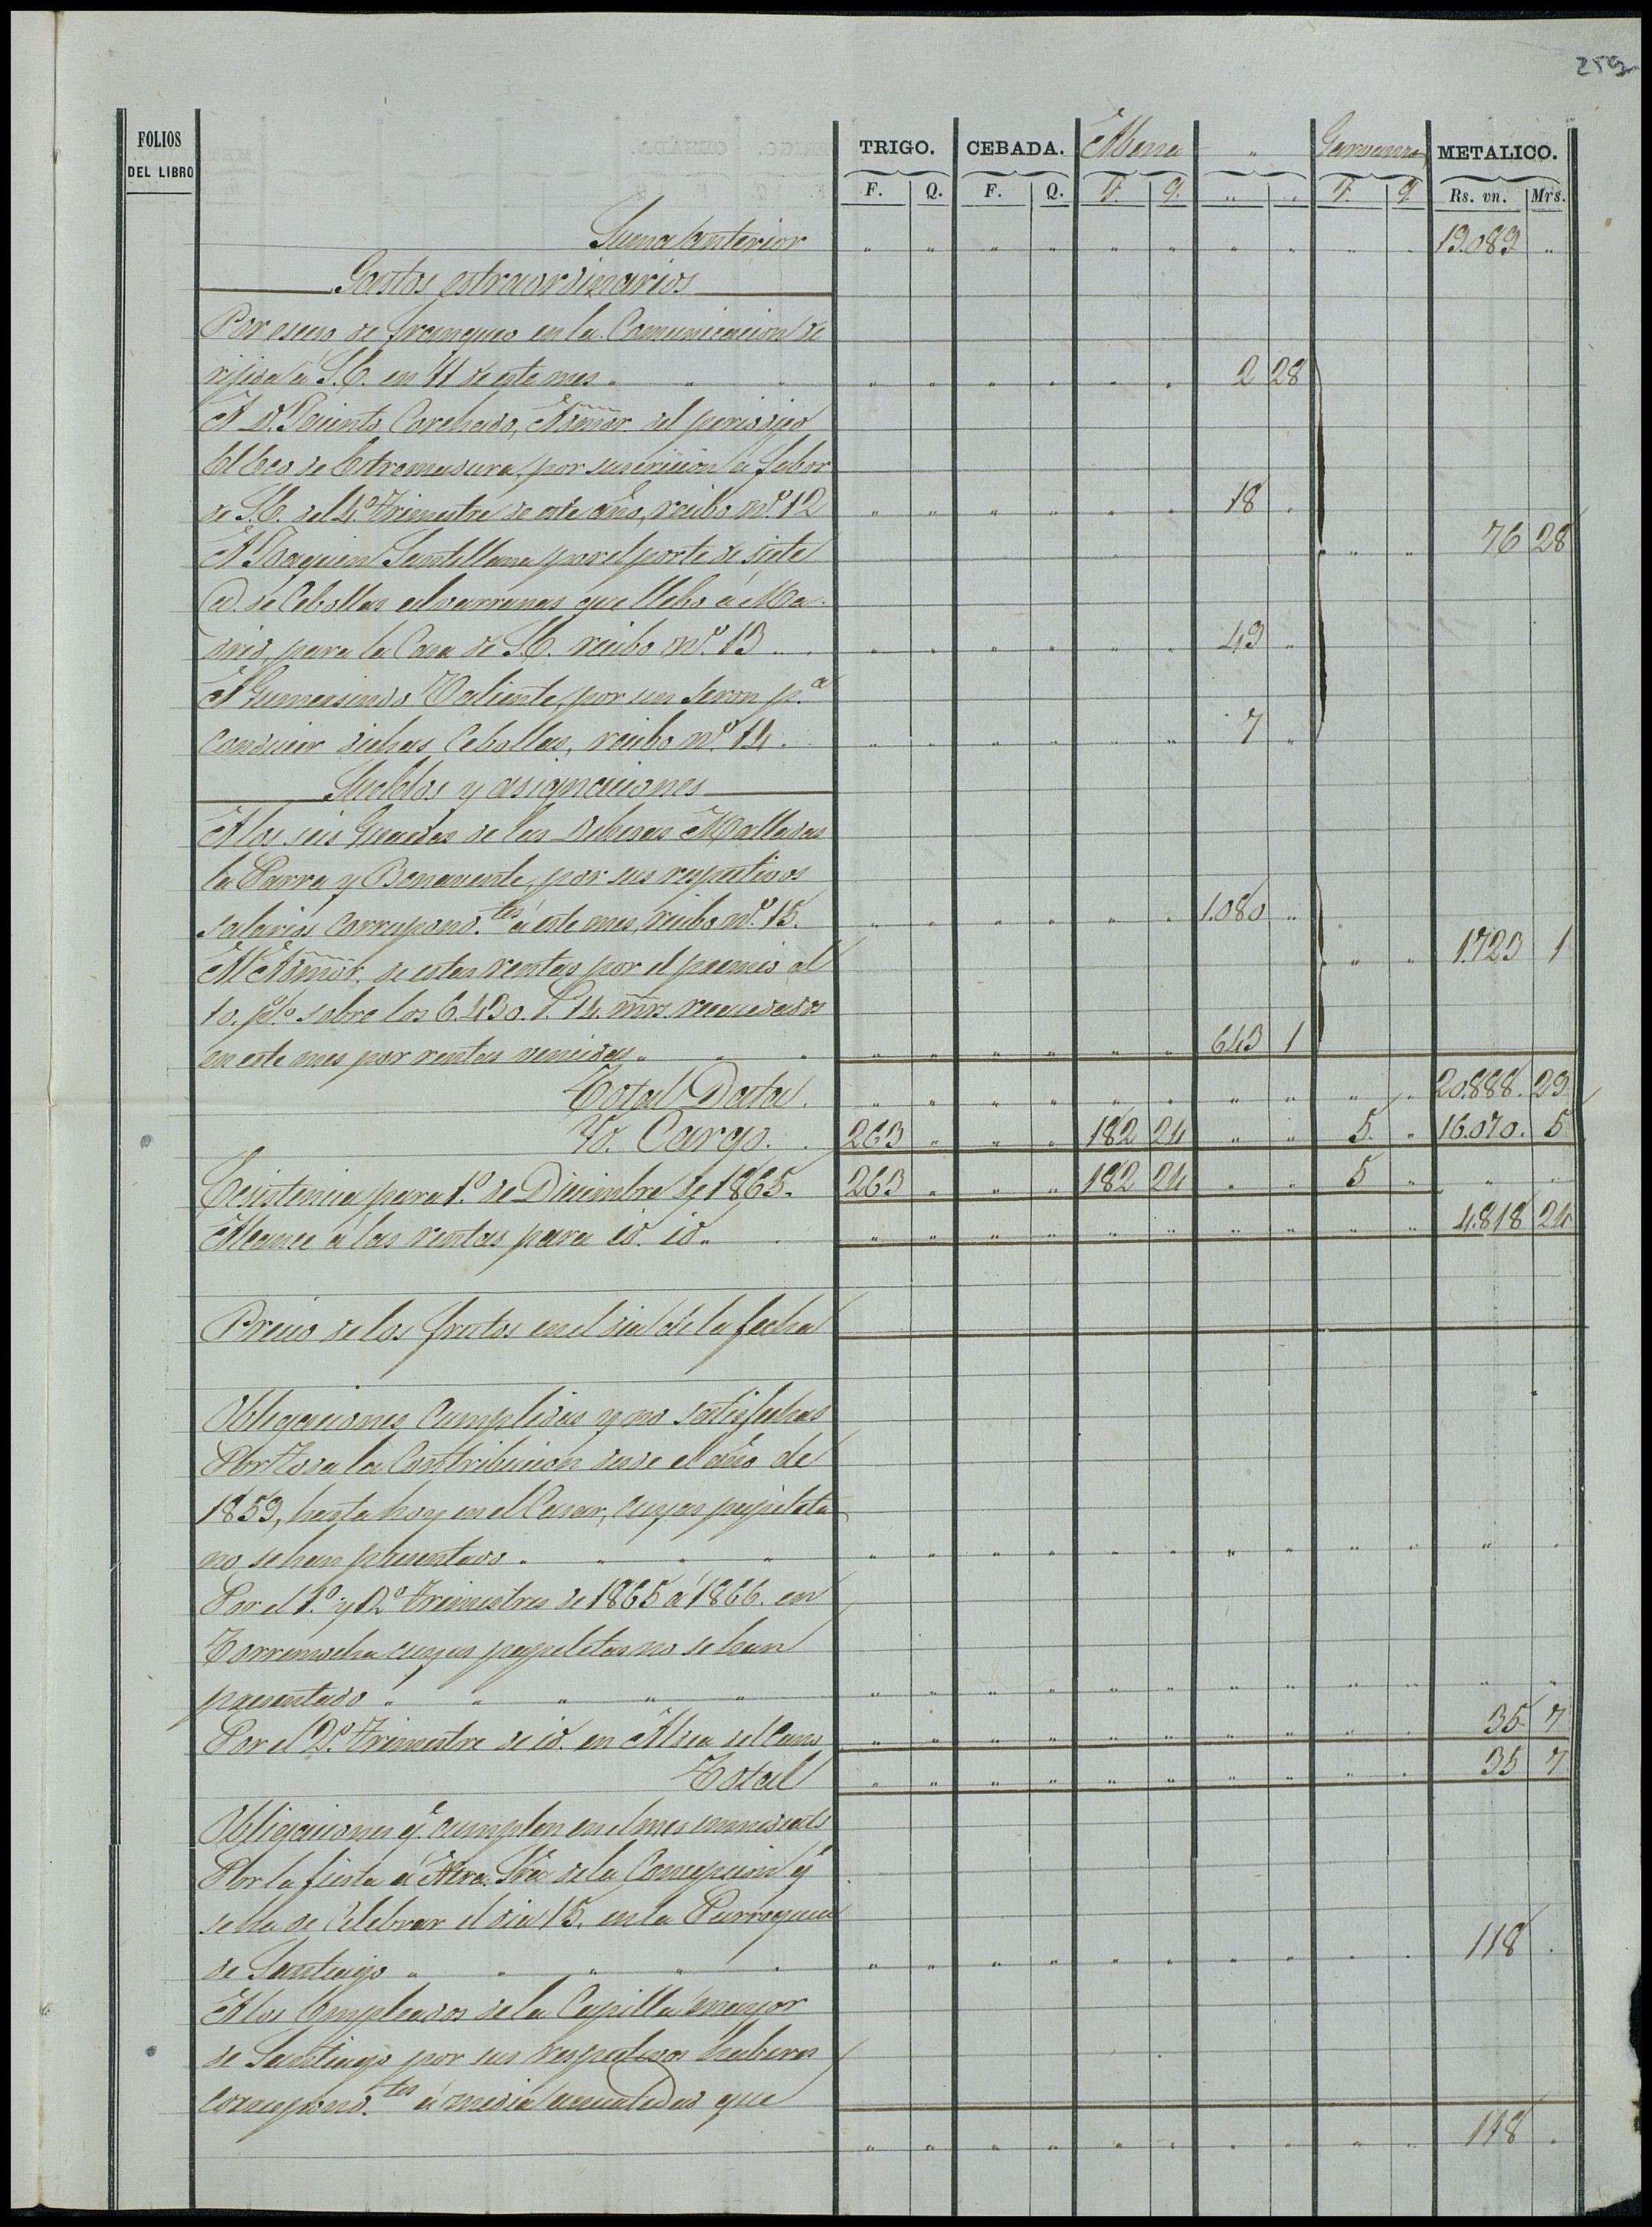 259
FOLIOS DEL LIBRO
TRIGO. CEBADA. Abena " Garvanzos METALICO.
F. Q. F. Q. F. Q. " " F. Q. Rs. vn. Mrs.
Suma anterior " " " " " " " " " " 19.089 "
Gastos estraordinarios
Por eseso de franqueo en la Comunicacion di
rijida á S.E. en 11 de este mes " " " " " " " " 2 28
A Dn. Jacinto Corchado, Admor. del periodico
El Eco de Estremadura, por suscricion á fabor
de S.E. del 4º trimestre de este año, recibo nº 12 " " " " " " 18 "
A Joaquin Santillana por el porte de siete " " 76 28
@ de Cebollas alvarranas que llebó á Ma-
drid, para la Casa de S.E. recibo nº 13 " " " " " " 49 "
A Gumersindo Valiente, por un seron p.a
conducir dichas Cebollas, recibo nº 14. " " " " " " 7 "
Sueldos y asignaciones
A los seis Guardas de las Dehesas Malladas
la Parra y Benavente, por sus respectivos
salarios correspond.tes á este mes, recibo nº 15. " " " " " " 1.080 "
Al Admor. de estas rentas por el premio al " " 1.723 1
10. p%o sobre los 6.430. r. 14 mrs. recaudados
en este mes por rentas vencidas " " " " " " " " 643 1
Total Data. " " " " " " " " " " 20.888. 29
Yd. Cargo. 263 " " " 182 24 " " 5. " 16.070. 5
Ecsistencia para 1º de Diciembre de 1865. 263 " " " 182 24 " " 5 " " "
Alcance á las rentas para id. id. " " " " " " " " " " 4.818 24
Precio de los frutos en el dia de la fecha
Obligaciones cumplidas y no satisfechas
Por toda la Contribucion desde el año de
1859, hasta hoy en el Casar, cuyas papeletas
no se han presentado " " " " " " " " " " " " " " "
Por el 1º y 2º trimestres de 1865 á 1866. en
Torremocha cuyas papeletas no se han
presentado " " " " " " " " " " " " " " " " "
Por el 2º trimestre de id. en Aldea del Cano " " " " " " " " " " 35 7
Total " " " " " " " " " " 35 7
Obligaciones q.e cumplen en el mes inmediato
Por la fiesta á Ntra. Sra. de la Concepcion q.e
se ha de celebrar el dia 15. en la Parroquia
de Santiago " " " " " " " " " " " " " " " 118 "
A los Empleados de la Capilla mayor
de Santiago por sus respectivos haberes
correspond.tes á media anualidad que
" " " " " " " " " " 118 "